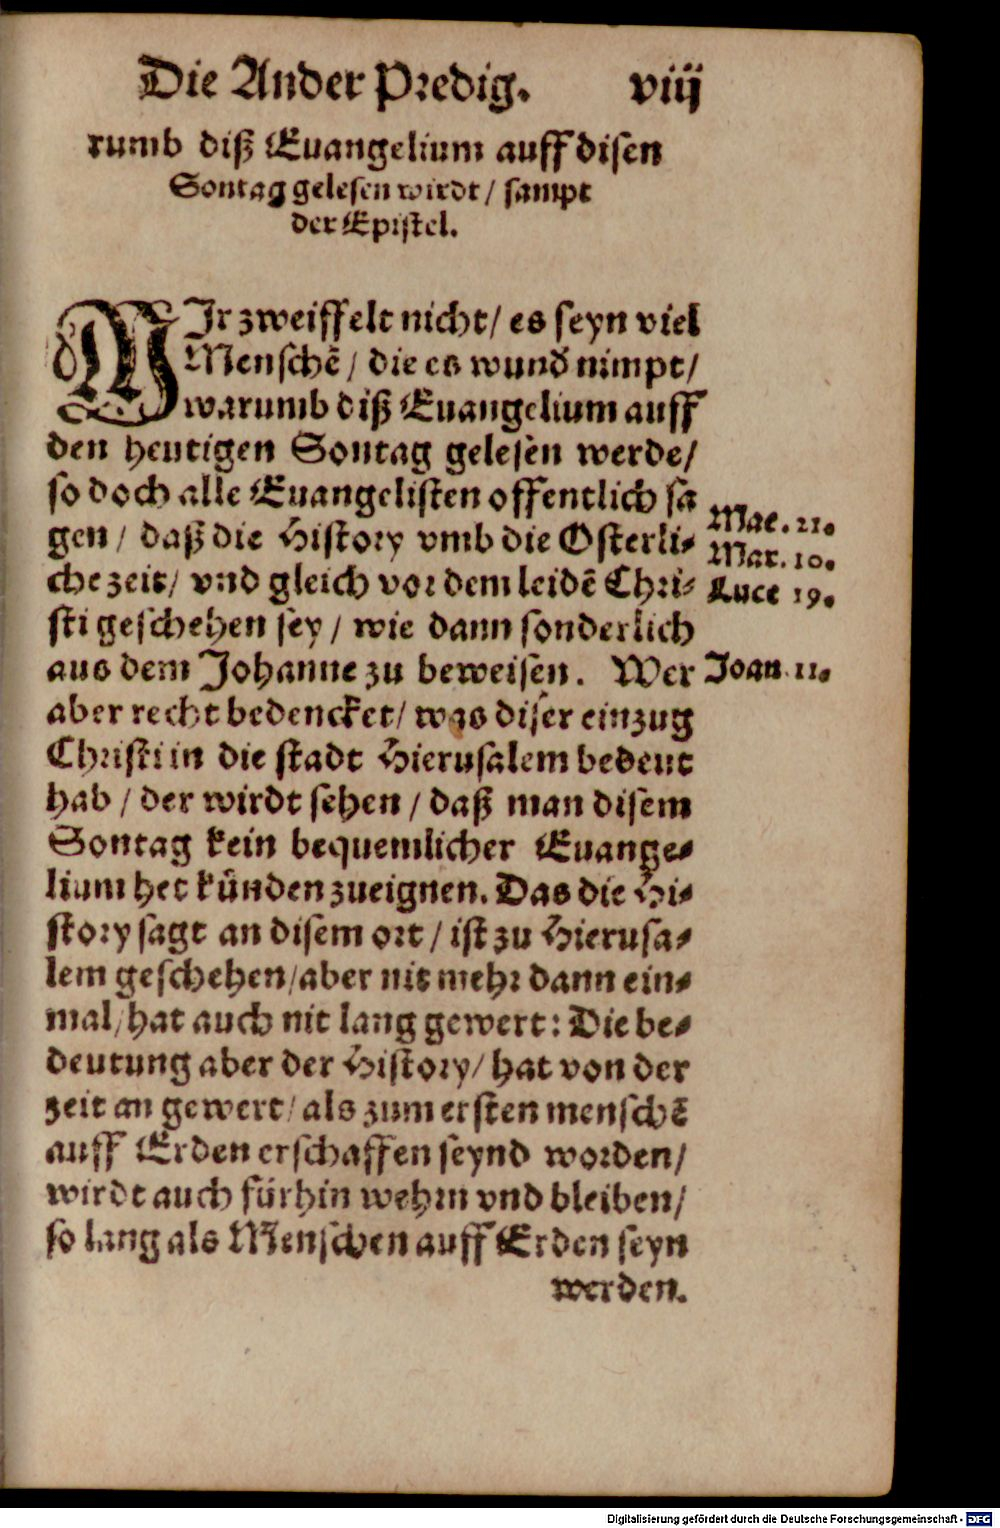 Die Ander Predig. viij
rumb diß Euangelium auff disen
Sontag gelesen wirdt / sampt
der Epistel.
MIr zweiffelt nicht / es seyn viel
Menschē / die es wund' nimpt /
warumb diß Euangelium auff
den heutigen Sontag gelesen werde /
so doch alle Euangelisten offentlich sa
gen / daß die History vmb die Osterli-
che zeit / vnd gleich vor dem leidē Chri-
sti geschehen sey / wie dann sonderlich
aus dem Johanne zu beweisen. Wer
aber recht bedencket / was diser einzug
Christi in die stadt Hierusalem bedeut
hab / der wirdt sehen / daß man disem
Sontag kein bequemlicher Euange-
lium het künden zueignen. Das die Hi-
story sagt an disem ort / ist zu Hierusa-
lem geschehen / aber nit mehr dann ein-
mal / hat auch nit lang gewert: Die be-
deutung aber der History / hat von der
zeit an gewert / als zum ersten menschē
auff Erden erschaffen seynd worden /
wirdt auch fürhin wehrn vnd bleiben /
so lang als Menschen auff Erden seyn
werden.
Mat. 21.
Mar. 10.
Luce 19.
Joan. 11.
Digitalisierung gefördert durch die Deutsche Forschungsgemeinschaft - DFG